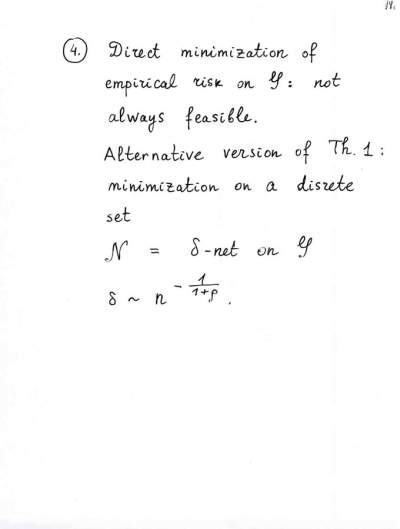 14.
④. Direct minimization of
empirical risk on 𝒢: not
always feasible.
Alternative version of Th. 1:
minimization on a disrete
set
𝒩 = δ-net on 𝒢
δ ~ n^{-1/(1+ρ)}.